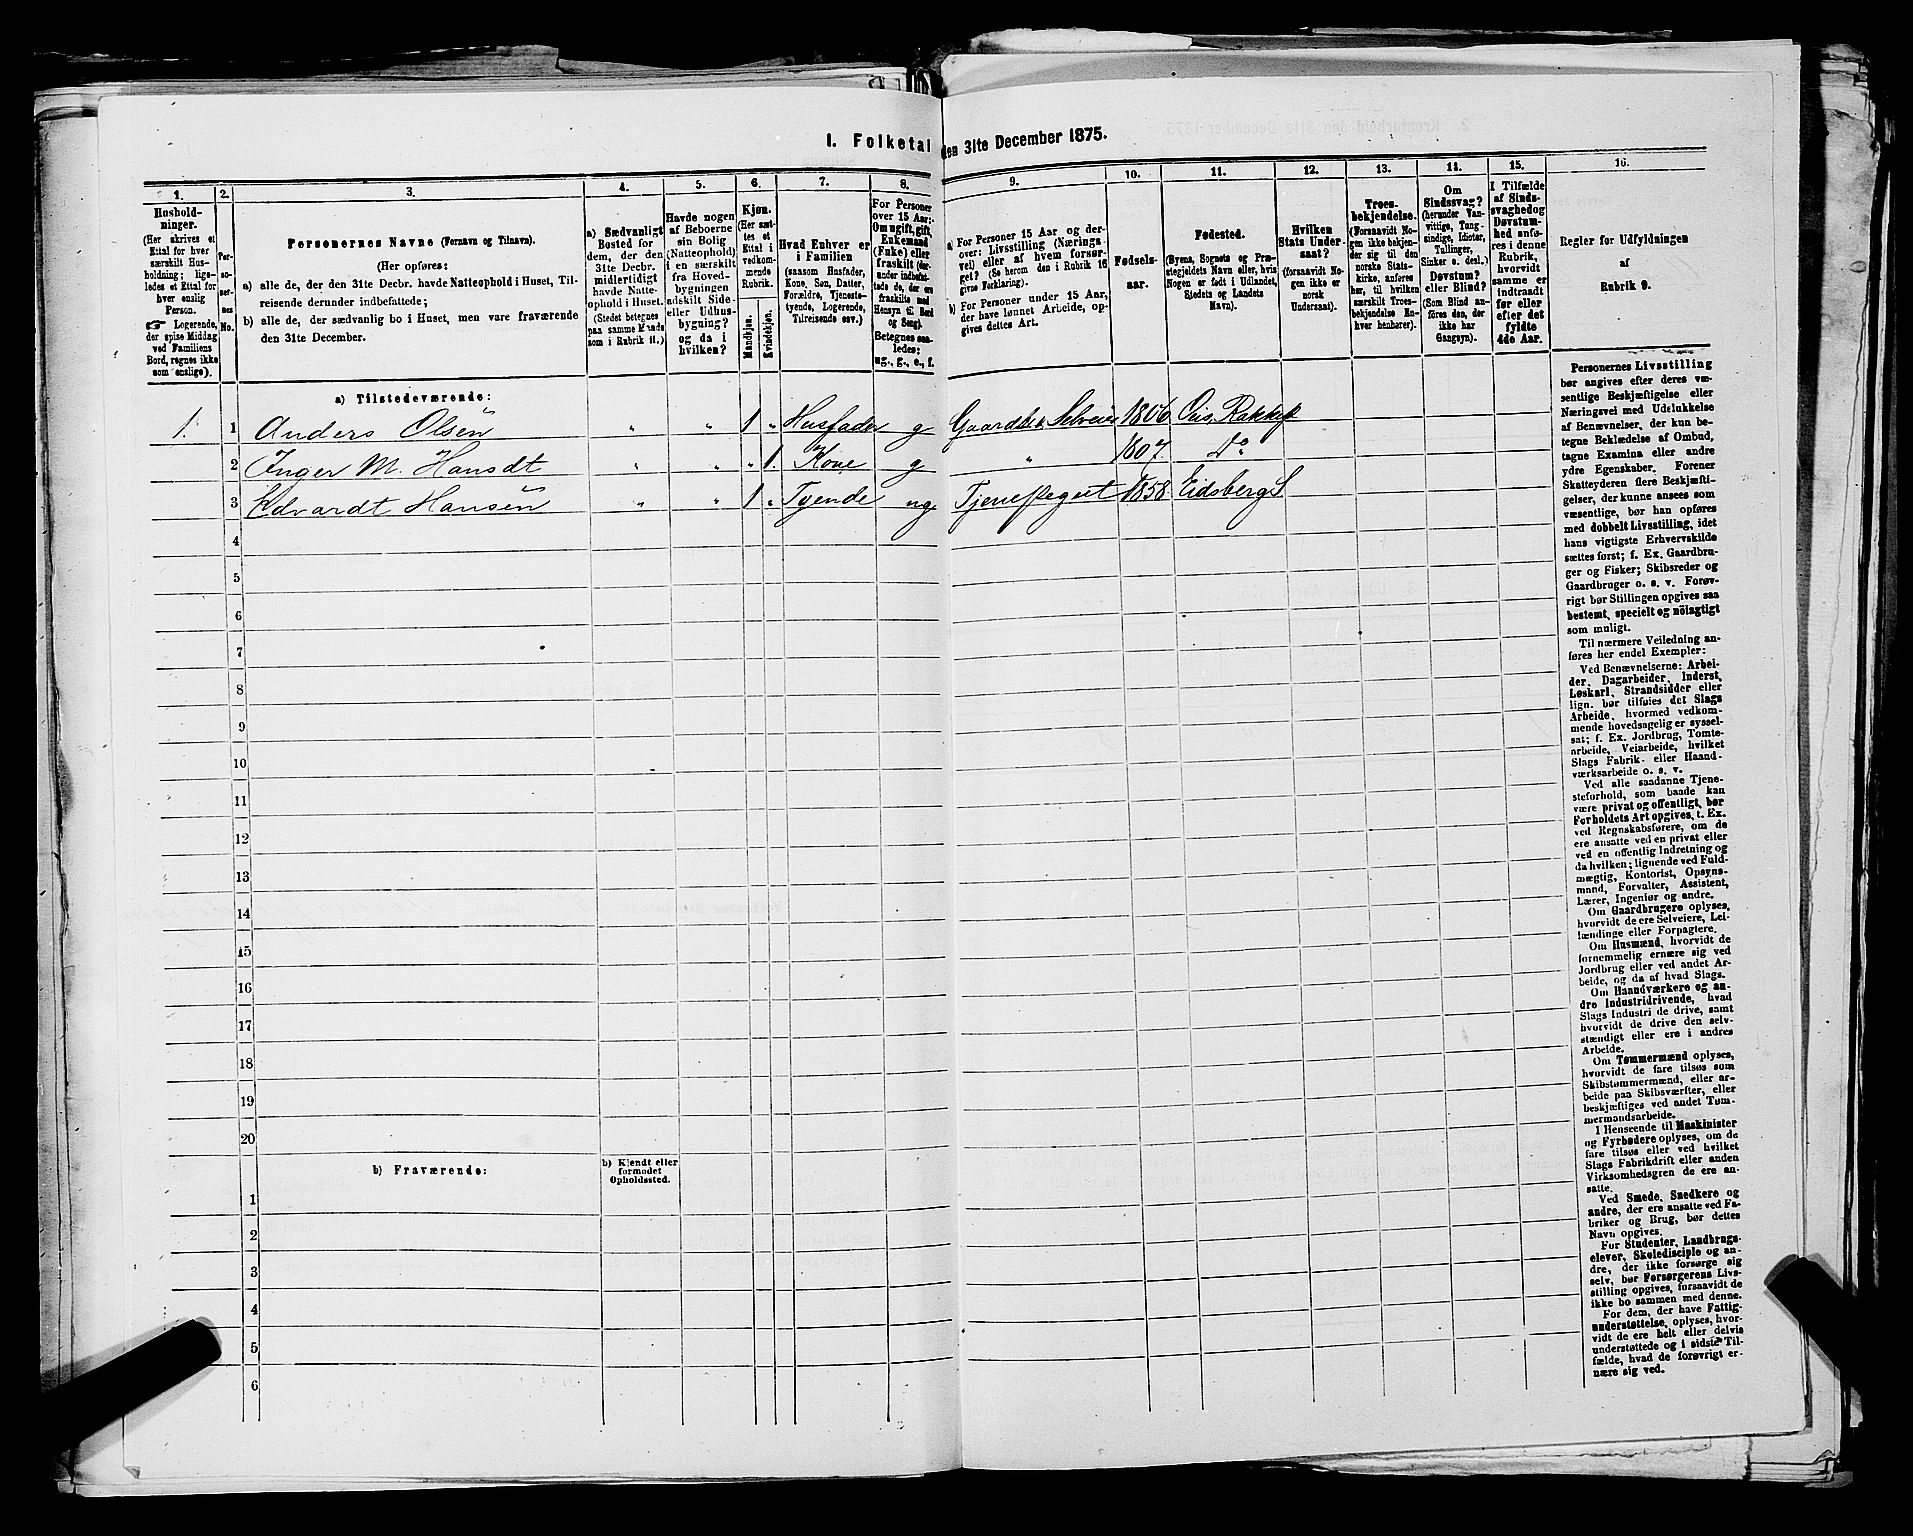 1. Folketal den 31te December 1875.
1. 2. 3. 4. 5. 6. 7. 8. 9. 10. 11. 12. 13. 14. 15. 16.
Hushold-
ninger.
(Her skrives et
Ettal for hver
særskilt Hus-
holdning; lige-
ledes et Ettal for
hver enslig
Person.
☞ Logerende,
der spise Middag
ved Familiens
Bord, regnes ikke
som enslige).
Per-
so-
ner-
nes
No.
Personernes Navne (Fornavn og Tilnavn).
(Her opføres:
a) alle de, der den 31te Decbr. havde Natteophold i Huset, Til-
reisende derunder indbefattede;
b) alle de, der sædvanlig bo i Huset, men vare fraværende
den 31te December.
a) Sædvanligt
Bosted for
dem, der den
31te Decbr.
midlertidigt
havde Natte-
ophold i Huset.
(Stedet betegnes
paa samme Maade
som i Rubrik 11.)
Havde nogen
af Beboerne
sin Bolig
(Natteophold)
i en særskilt
fra Hoved-
bygningen
adskilt Side-
eller Udhus-
bygning?
og da i
hvilken?
Kjøn.
(Her sæt-
tes et
Ettal i
vedkom-
mende
Rubrik.
Mandkjøn.
Kvindekjøn.
Hvad Enhver er
i Familien
(saasom Husfader,
Kone, Søn, Datter,
Forældre, Tjeneste-
tyende, Logerende,
Tilreisende osv.)
For Personer
over 15 Aar:
Om ugift, gift,
Enkemand
(Enke) eller
fraskilt (der-
under indbefat-
tede de, der ere
fraskilte med
Hensyn til Bord
og Seng).
Betegnes saa-
ledes:
ug., g., e., f.
a) For Personer 15 Aar og der-
over: Livsstilling (Nærings-
vei) eller af hvem forsør-
get? (Se herom den i Rubrik 16
givne Forklaring).
b) For Personer under 15 Aar,
der have lønnet Arbeide, op-
gives dettes Art.
Fødsels-
aar.
Fødested.
(Byens, Sognets og Præ-
stegjeldets Navn eller, hvis
Nogen er født i Udlandet,
Stedets og Landets
Navn).
Hvilken
Stats Under-
saat?
(forsaavidt No-
gen ikke er
norsk
Undersaat).
Troes-
bekjendelse.
(Forsaavidt No-
gen ikke bekjen-
der sig til den
norske Stats-
kirke, anføres
her, til hvilken
særskilt Troes-
bekjendelse En-
hver henhører).
Om
Sindssvag?
(herunder Van-
vittige, Tung-
sindige, Idioter,
Tullinger,
Sinker o. desl.)
Døvstum?
eller Blind?
(Som Blind an-
føres den, der
ikke har
Gangsyn).
I Tilfælde
af Sinds-
svaghed og
Døvstum-
hed anfø-
res i denne
Rubrik,
hvorvidt
samme er
indtraadt
før eller
efter det
fyldte
4de Aar.
Regler for Udfyldningen
af
Rubrik 9.
a) Tilstedeværende:
1. 1 Anders Olsen " " 1 " Husfader g Gaardbr. Selveier 1806 Ous, Rakke
2 Inger M. Hansdt " " " 1. Kone g " 1807. Do
3 Edvardt Hansen " " 1 " Tyende ug. 1858 Eidsberg S
4
5
6
7
8
9
10
11
12
13
14
15
16
17
18
19
20
b) Fraværende:
b) Kjendt eller
formodet
Opholdssted.
1
2
3
4
5
6
Personernes Livsstilling
bør angives efter deres væ-
sentlige Beskjæftigelse eller
Næringsvei med Udelukkelse
af Benævnelser, der kun be-
tegne Beklædelse af Ombud,
tagne Examina eller andre
ydre Egenskaber. Forener
Skatteyderen flere Beskjæfti-
gelser, der kunne ansees som
væsentlige, bør han opføres
med dobbelt Livsstilling, idet
hans vigtigste Erhvervskilde
sættes først; f. Ex. Gaardbru-
ger og Fisker; Skibsreder og
Gaardbruger o. s. v. Forøv-
rigt bør Stillingen opgives saa
bestemt, specielt og nöiagtigt
som muligt.
Til nærmere Veiledning an-
føres her endel Exempler:
Ved Benævnelserne: Arbei-
der, Dagarbeider, Inderst,
Løskarl, Strandsidder eller
lign. bør tilføies det Slags
Arbeide, hvormed vedkom-
mende hovedsagelig er syssel-
sat; f. Ex. Jordbrug, Tomte-
arbeide, Veiarbeide, hvilket
Slags Fabrik- eller Haand-
værksarbeide o. s. v.
Ved alle saadanne Tjene-
steforhold, som baade kan
være privat og offentligt, bør
Forholdets Art opgives, t. Ex.
ved Regnskabsførere, om de
ere ansatte ved en privat eller
ved en offentlig Indretning og
da hvilken; lignende ved Fuld-
mægtig, Kontorist, Opsyns-
mand, Forvalter, Assistent,
Lærer, Ingeniør og andre.
Om Gaardbrugere oplyses,
hvorvidt de ere Selveiere, Lei-
lændinge eller Forpagtere.
Om Husmænd, hvorvidt de
fornemmelig ernære sig ved
Jordbrug eller ved andet Ar-
beide, og da af hvad Slags.
Om Haandværkere og an-
dre Industridrivende, hvad
Slags Industri de drive, samt
hvorvidt de drive den selv-
stændigt eller ere i andres
Arbeide.
Om Tømmermænd oplyses,
hvorvidt de fare tilsøs som
Skibstømmermænd, eller ar-
beide paa Skibsværfter, eller
beskjæftiges ved andet Tøm-
mermandsarbeide.
I Henseende til Maskinister
og Fyrbødere oplyses, om de
fare tilsøs eller ved hvilket
Slags Fabrikdrift eller anden
Virksomhedsgren de ere an-
satte.
Ved Smede, Snedkere og
andre, der ere ansatte ved Fa-
briker og Brug, bør dettes
Navn opgives.
For Studenter, Landbrugs-
elever, Skoledisciple og an-
dre, der ikke forsørge sig
selv, bør Forsørgerens Livs-
stilling opgives, forsaavidt de
ikke bo sammen med denne.
For dem, der have Fattig-
understøttelse, oplyses, hvor-
vidt de ere helt eller delvis
understøttede og i sidste Til-
fælde, hvad de forøvrigt er-
nære sig ved.